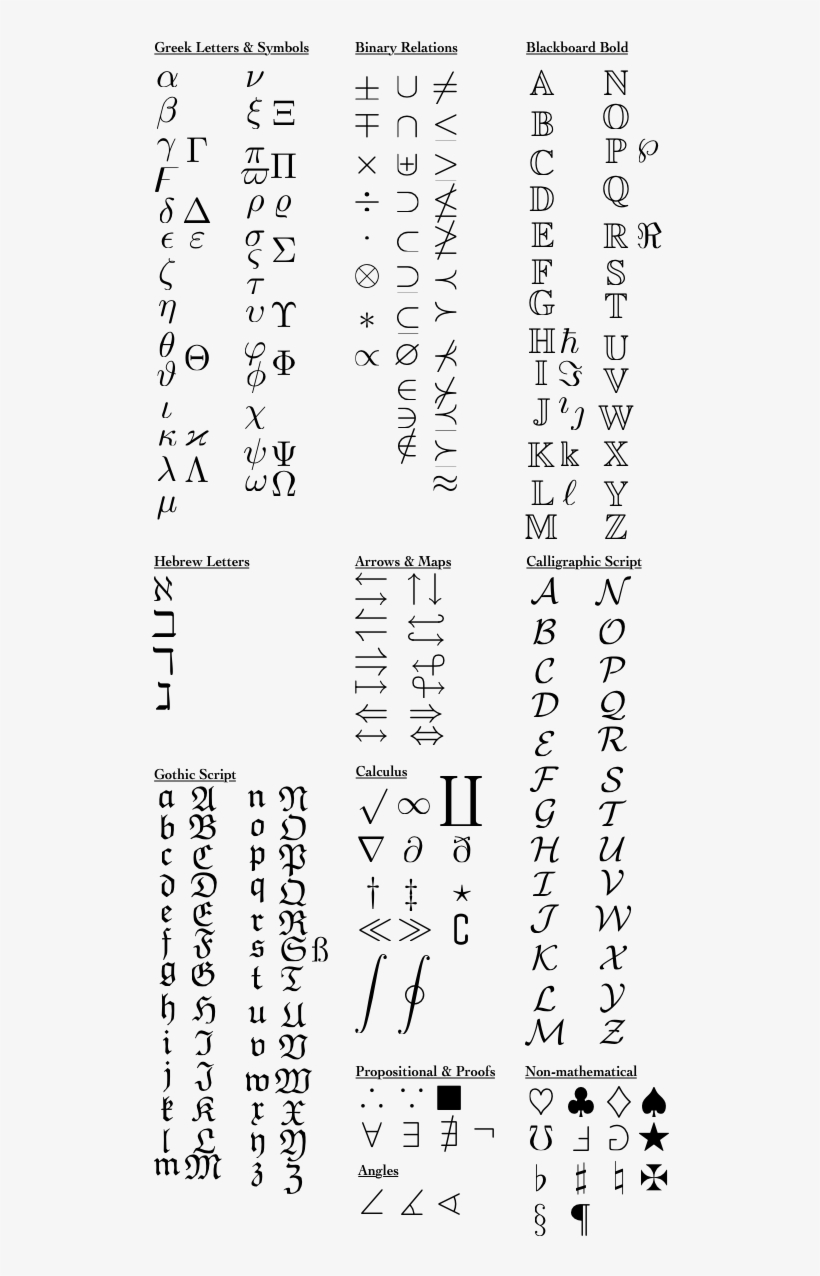 Greek Letters & Symbols
α ν
β ξ Ξ
γ Γ π Π
Ϝ ϖ
δ Δ ρ ϱ
ϵ ε σ Σ
ζ ς
η τ
θ Θ υ ϒ
ϑ φ Φ
ι ϕ
κ ϰ χ
λ Λ ψ Ψ
μ ω Ω
Binary Relations
± ∪ ≠
∓ ∩ ≤
× ⊎ ≥
÷ ⊃ ≰
· ⊂ ≱
⊗ ⊇ ≺
∗ ⊆ ≻
∝ ∅ ⊀
∈ ⊁
∋ ⪯
∉ ⪰
≈
Blackboard Bold
𝔸 ℕ
𝔹 𝕆
ℂ ℙ ℘
𝔻 ℚ
𝔼 ℝ ℜ
𝔽 𝕊
𝔾 𝕋
ℍ ℏ 𝕌
𝕀 ℑ 𝕍
𝕁 ı ȷ 𝕎
𝕂 𝕜 𝕏
𝕃 ℓ 𝕐
𝕄 ℤ
Hebrew Letters
ℵ
ℶ
ℸ
ℷ
Arrows & Maps
← ↑ ↓
→
↼ ↩
↽ ↪
⇀ ↫
⇁ ↬
↦
⇐ ⇒
↔ ⇔
Calligraphic Script
𝒜 𝒩
ℬ 𝒪
𝒞 𝒫
𝒟 𝒬
ℰ ℛ
ℱ 𝒮
𝒢 𝒯
ℋ 𝒰
ℐ 𝒱
𝒥 𝒲
𝒦 𝒳
ℒ 𝒴
ℳ 𝒵
Gothic Script
𝔞 𝔄 𝔫 𝔑
𝔟 𝔅 𝔬 𝔒
𝔠 ℭ 𝔭 𝔓
𝔡 𝔇 𝔮 𝔔
𝔢 𝔈 𝔯 ℜ
𝔣 𝔉 𝔰 𝔖 ß
𝔤 𝔊 𝔱 𝔗
𝔥 ℌ 𝔲 𝔘
𝔦 ℑ 𝔳 𝔙
𝔧 𝔍 𝔴 𝔚
𝔨 𝔎 𝔵 𝔛
𝔩 𝔏 𝔶 𝔜
𝔪 𝔐 𝔷 ℨ
Calculus
√ ∞ ∐
∇ ∂ ð
† ‡ ⋆
≪ ≫ ∁
∫ ∮
Propositional & Proofs
∴ ∵ ■
∀ ∃ ∄ ¬
Angles
∠ ∡ ∢
Non-mathematical
♡ ♣ ♢ ♠
℧ Ⅎ ⅁ ★
♭ ♯ ♮ ✠
§ ¶